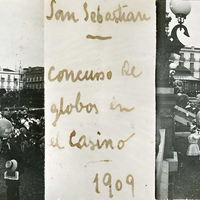 San Sebastian
Concurso de
globos en
el Casino
1909